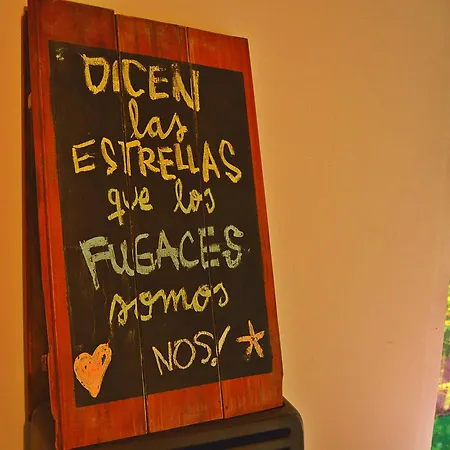 DICEN
las
ESTRELLAS
que los
FUGACES
somos
NOS!